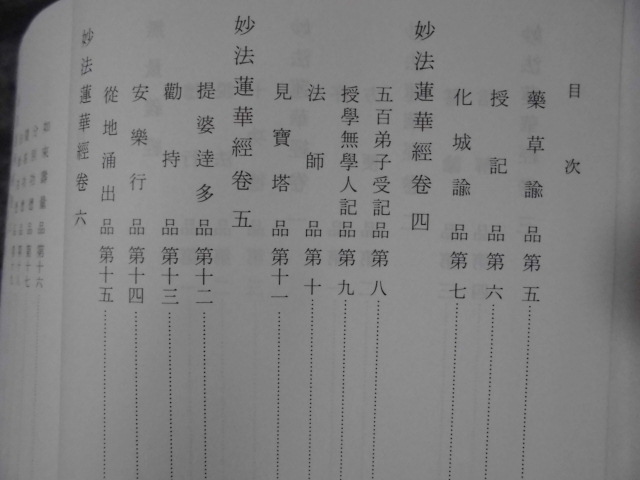 目次
藥草諭品第五
授記品第六
化城諭品第七
妙法蓮華經卷四
五百弟子受記品第八
授學無學人記品第九
法師品第十
見寶塔品第十一
妙法蓮華經卷五
提婆達多品第十二
勸持品第十三
安樂行品第十四
從地涌出品第十五
妙法蓮華經卷六
如來壽量品第十六